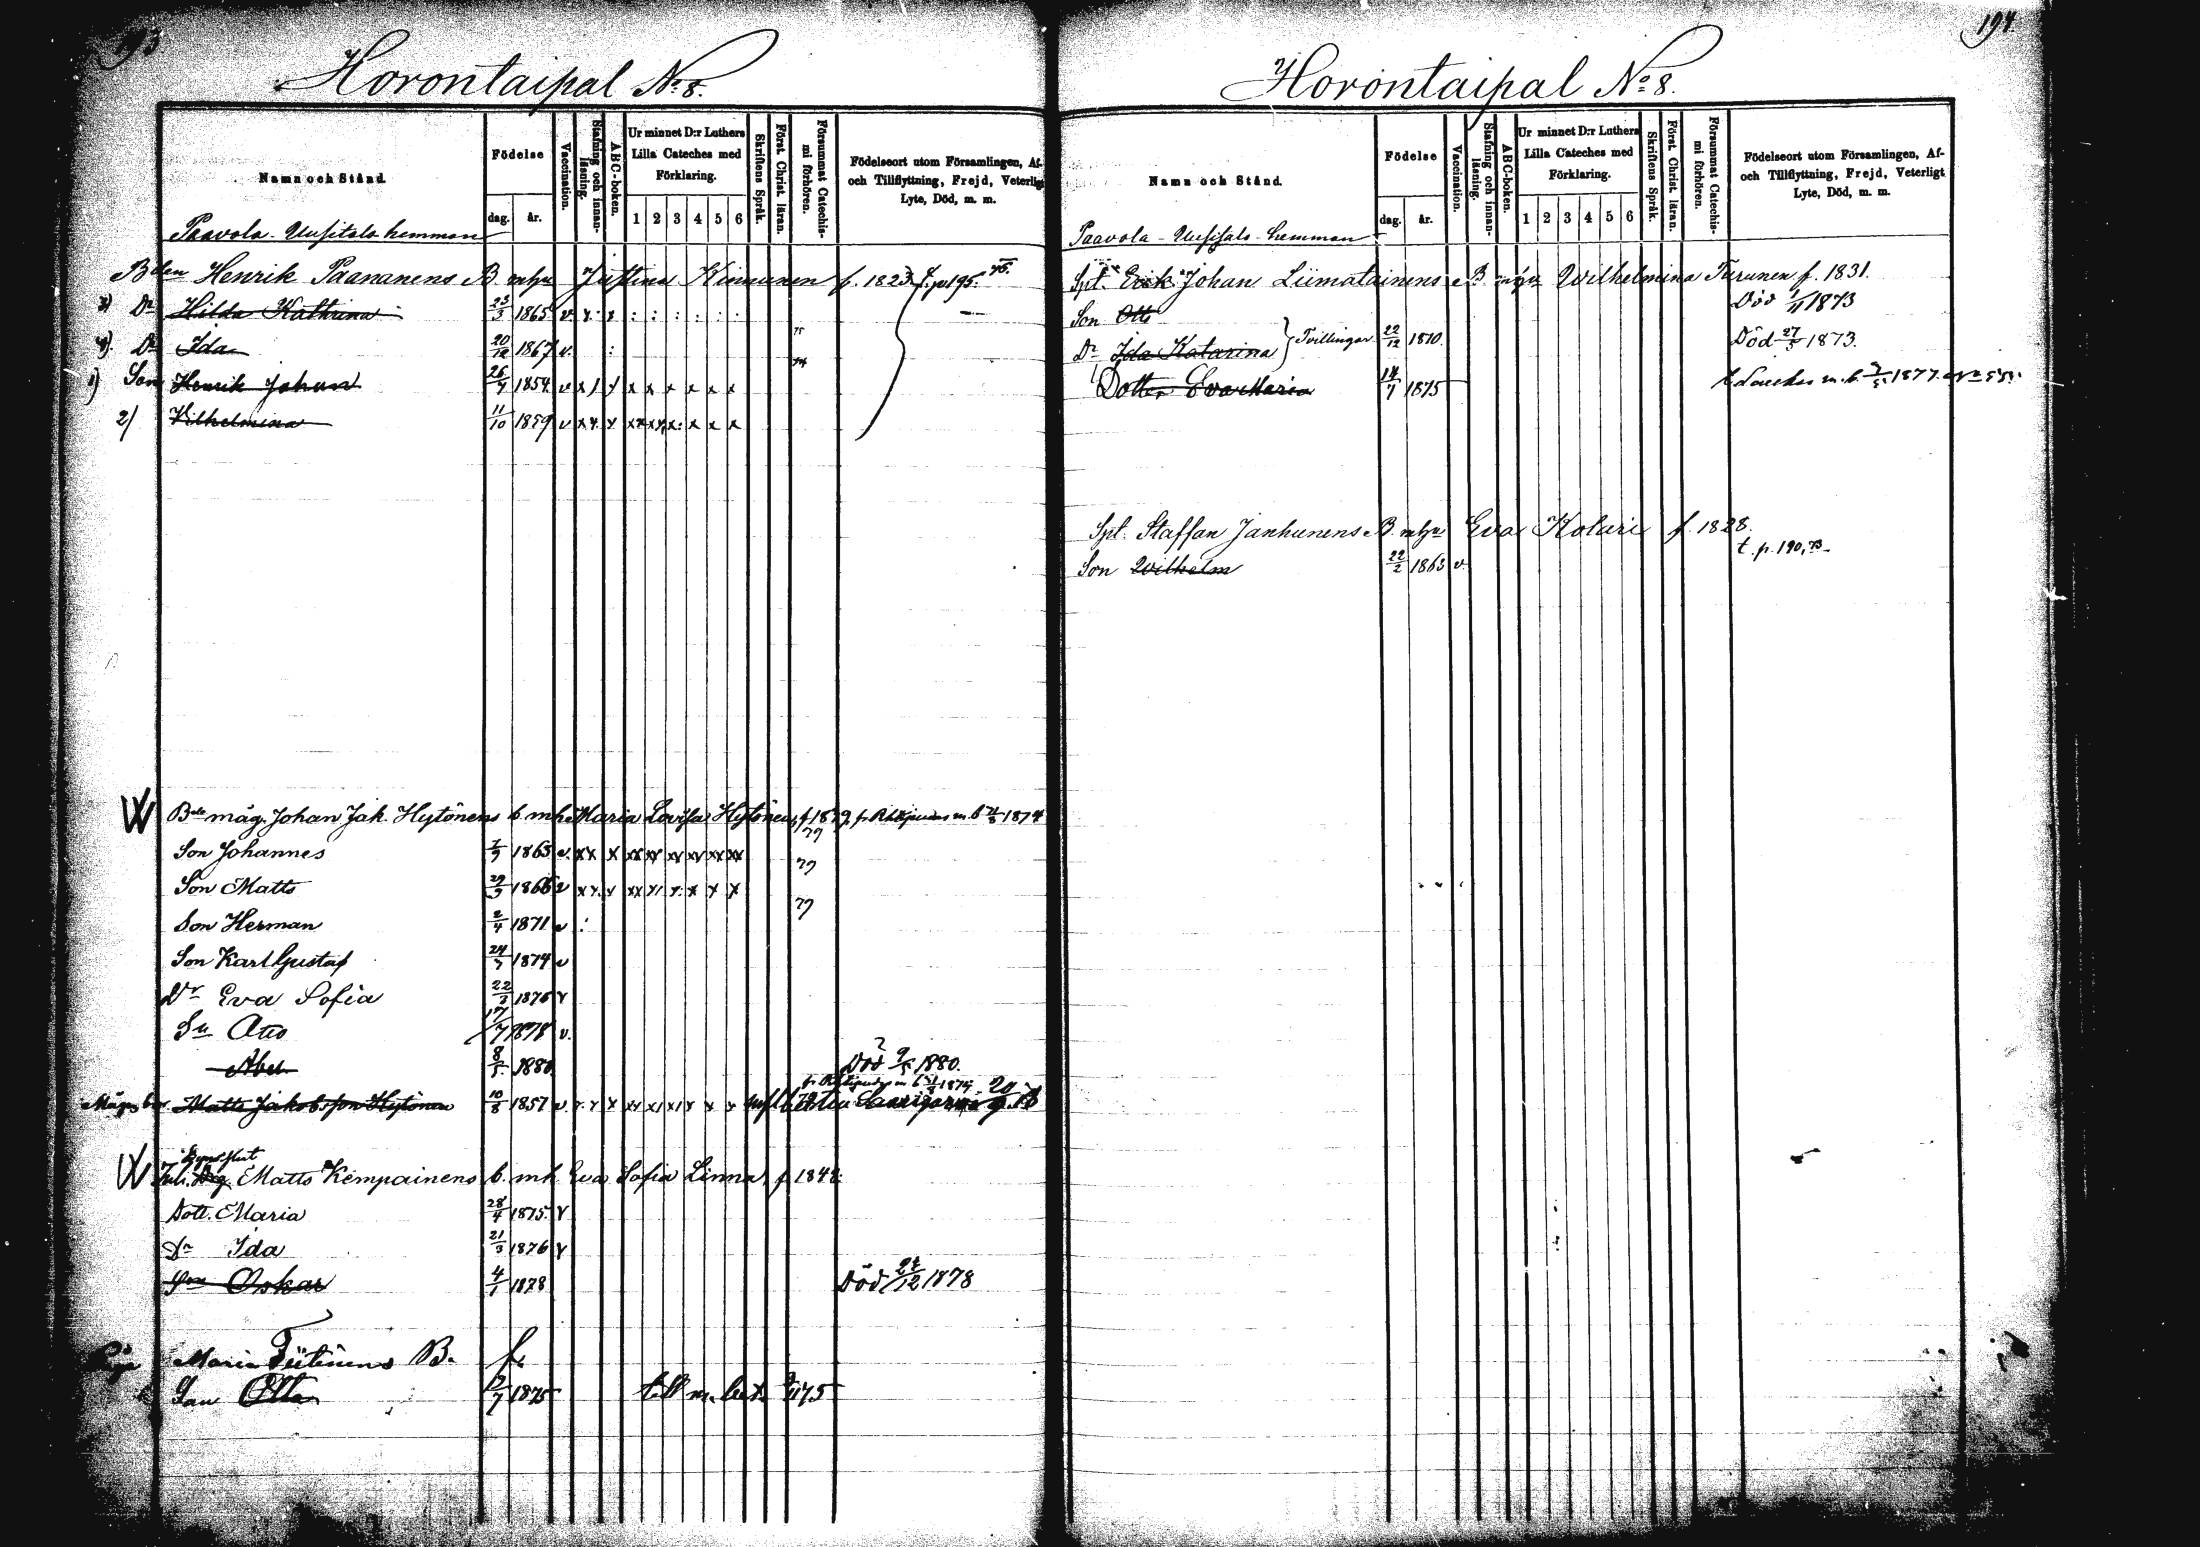 193
Horontaipal No 8.
Namn och Stånd.
Födelse
dag. år.
Vaccination.
Stafning och innan-läsning.
ABC-boken.
Ur minnet D:r Luthers Lilla Cateches med Förklaring.
1 2 3 4 5 6
Skriftens Språk.
Förat. Christ. läran.
Försummat Catechis-mi förhören.
Födelseort utom Församlingen, Af- och Tillflyttning, Frejd, Veterligt Lyte, Död, m. m.
Paavola - Uusitalo hemman
Bden Henrik Paananens B mhu Justina Kinnunen f. 1823 t. p. 195. 75.
3) Dr Hilda Kathrina 23/3 1865 v.
4) Dr Ida 20/12 1867 v.
1) Son Henrik Johan 26/7 1854 v x / / x x x x x x
2) Vilhelmina 11/10 1859 v
Bde måg. Johan Jak. Hytönens b. mh Maria Lovisa Hytönen, f. 1839, 1874
Son Johannes 7/9 1863 v. xx x xx xx xx xx xx xx
Son Matts 29/9 1866 v
Son Herman 2/4 1871 v :
Son Karl Gustaf 24/7 1874 v
Dr Eva Sofia 22/3 1876 v
Sn Otto 17/7 1878 v.
Abel 8/5 1880 Död 9/5 1880.
Matts Jakobsson Hytönen 10/8 1857 v
Matts Kempainens b. mh Eva Sofia Linna, f. 1848.
Dott. Maria 28/4 1875 v
Dr Ida 21/3 1876 v
Son Oskar 4/1 1878 Död 12 1878
Maria Tiitinens B. f.
Son Otto 7 1875 till m. bet. 75
194
Horontaipal No 8.
Namn och Stånd.
Födelse
dag. år.
Vaccination.
Stafning och innan-läsning.
ABC-boken.
Ur minnet D:r Luthers Lilla Cateches med Förklaring.
1 2 3 4 5 6
Skriftens Språk.
Förat. Christ. läran.
Försummat Catechis-mi förhören.
Födelseort utom Församlingen, Af- och Tillflyttning, Frejd, Veterligt Lyte, Död, m. m.
Paavola - Uusitalo - hemman
Spt. Erik Johan Liimatainens B mhu Wilhelmina Turunen f. 1831.
Son Otto Död 1873
Dr Ida Katarina } Tvillingar 22/12 1870. Död 27/3 1873.
Dotter Eva Maria 14/7 1875 1877
Spt. Staffan Janhunens B mhu Eva Kolari f. 1828.
Son Wilhelm 22/2 1863 v. t. p. 190, 73